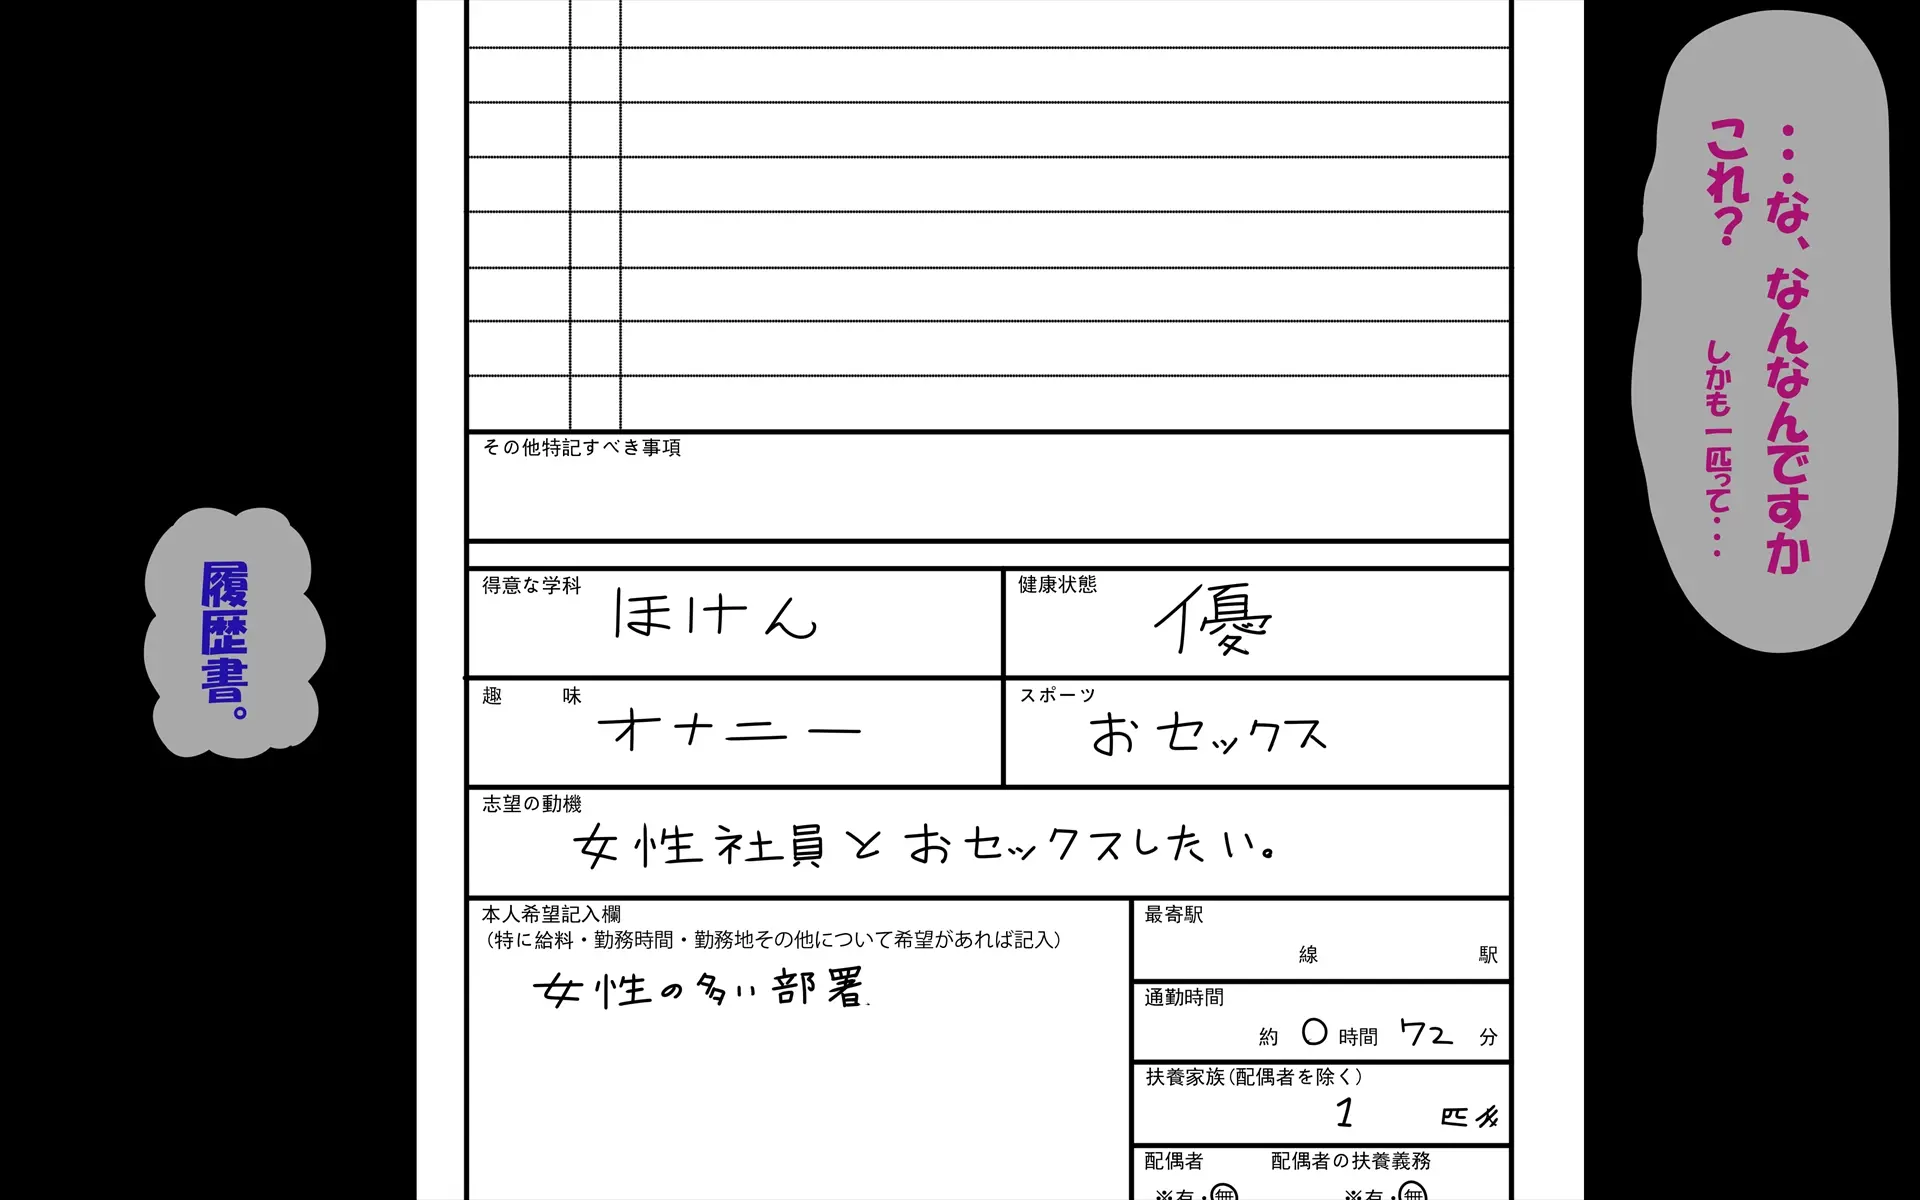 ・・・な、なんなんですか
これ？
しかも一匹って・・・
その他特記すべき事項
得意な学科
ほけん
健康状態
優
趣味
オナニー
スポーツ
おセックス
志望の動機
女性社員とおセックスしたい。
本人希望記入欄
（特に給料・勤務時間・勤務地その他について希望があれば記入）
女性の多い部署
最寄駅
線 駅
通勤時間
約 0 時間 72 分
扶養家族(配偶者を除く)
1 匹
配偶者 配偶者の扶養義務
※有・無 ※有・無
履歴書。